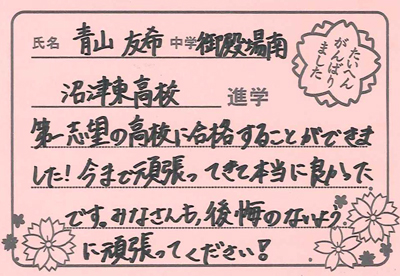 氏名 青山 友希 中学 御殿場南
たいへん
がんばり
ました
沼津東高校 進学
第一志望の高校に合格することができま
した!今まで頑張ってきて本当に良かった
です。みなさんも、後悔のないよう
に頑張ってください!